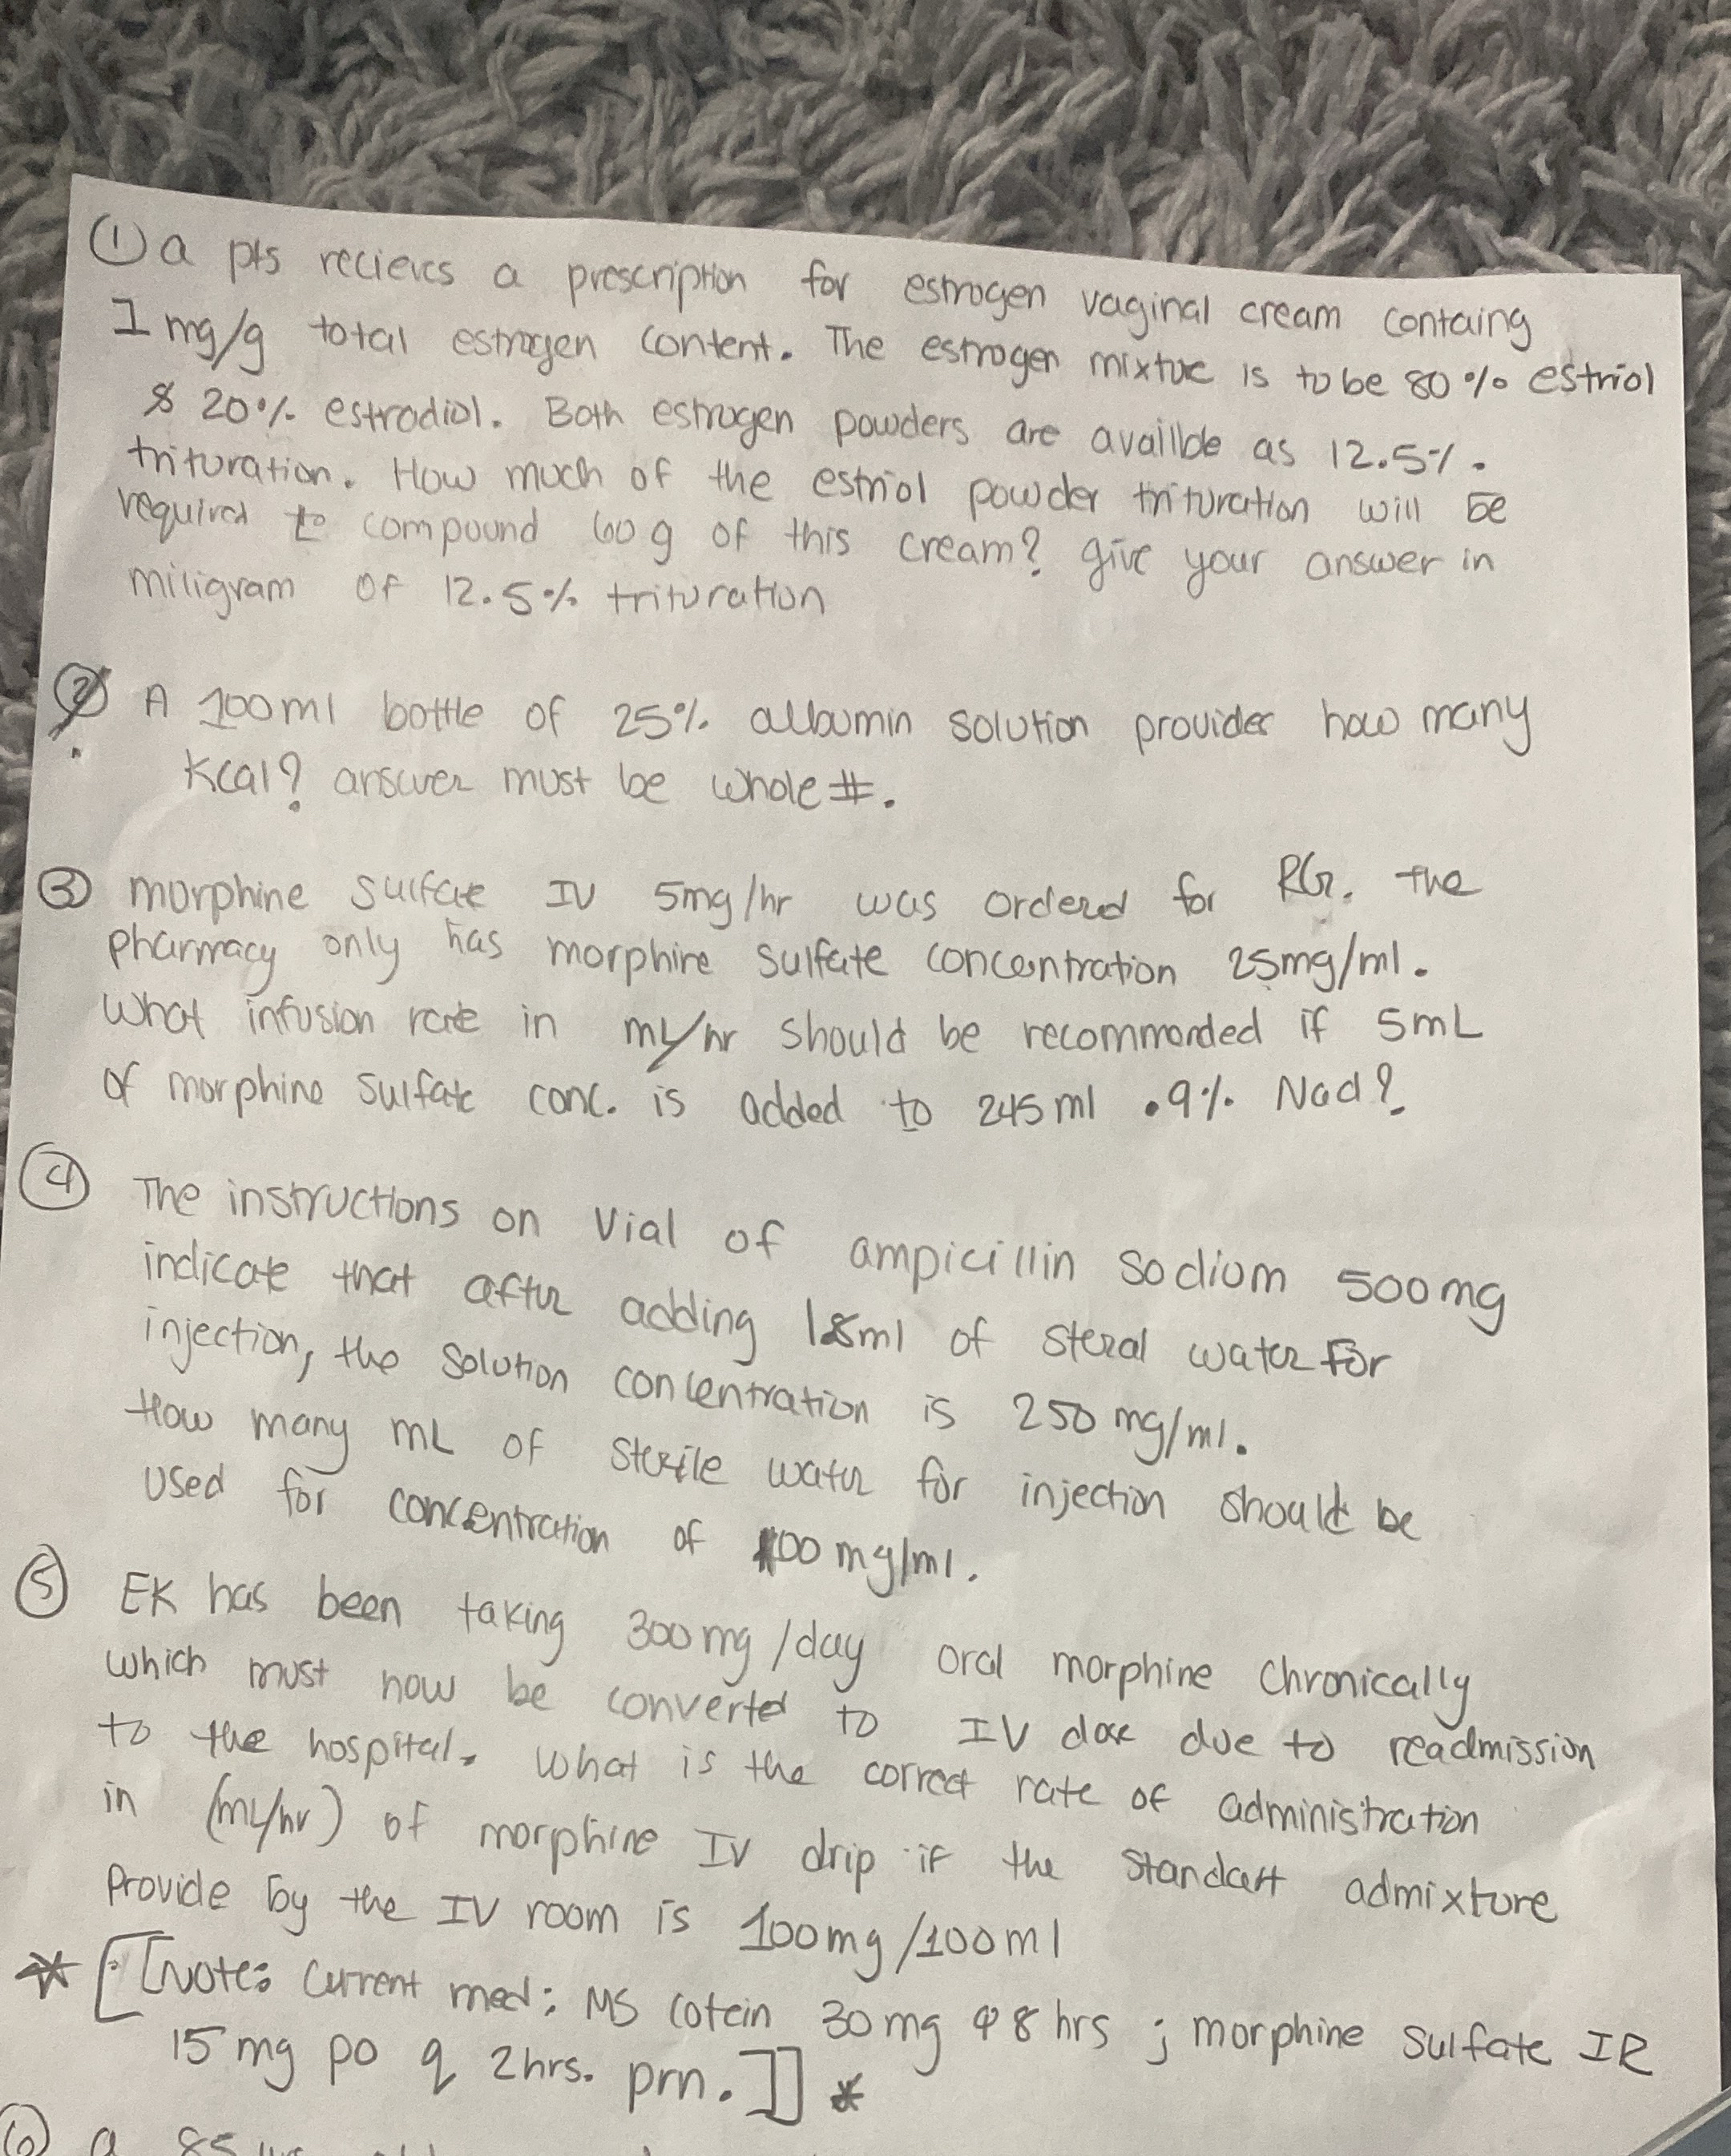 ① a pts recieves a prescription for estrogen vaginal cream containg
1 mg/g total estrogen content. The estrogen mixtue is to be 80% estriol
& 20% estradiol. Both estrogen powders are availlde as 12.5%.
trituration. How much of the estriol powder trituration will be
required to compound 60 g of this cream? give your answer in
miligram of 12.5% trituration
② A 100ml bottle of 25% albumin solution provides how many
Kcal? answer must be whole #.
③ morphine sulfate IV 5mg/hr was ordered for RG. the
pharmacy only has morphire sulfate concentration 25mg/ml.
What infusion rate in mL/hr should be recommended if 5mL
of morphine sulfate conc. is added to 245ml .9% Nacl?
④ The instructions on vial of ampicillin sodium 500mg
indicate that after adding 1.8ml of steral water for
injection, the solution concentration is 250 mg/ml.
How many mL of sterile water for injection should be
used for concentration of 100 mg/ml.
⑤ EK has been taking 300mg/day oral morphine chronically
which must now be converted to IV dose due to readmission
to the hospital. What is the correct rate of administration
in (mL/hr) of morphine IV drip if the standart admixture
provide by the IV room is 100mg/100ml
* [[Note: Current med: MS cotein 30mg q 8 hrs ; morphine sulfate IR
15 mg po q 2hrs. prn.]] *
⑥ a 85